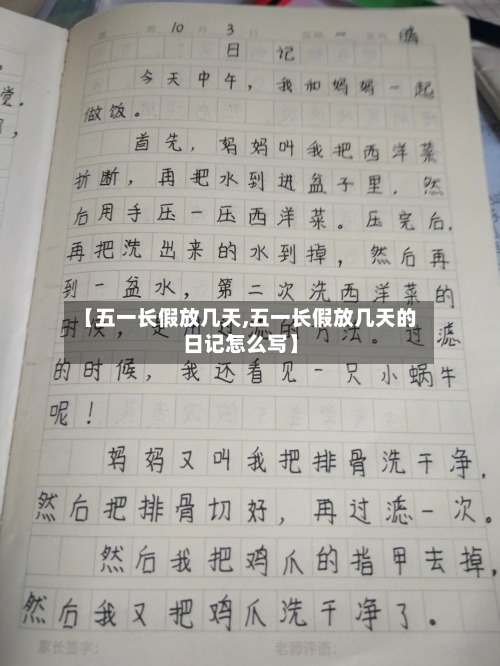 10 3
日记
今天中午，我和妈妈一起
做饭。
首先，妈妈叫我把西洋菜
折断，再把水到进盆子里，然
后用手压一压西洋菜。压完后，
再把洗出来的水到掉，然后再
到一盆水，第二次洗西洋菜的
【五一长假放几天,五一长假放几天的
日记怎么写】
的时候，我还看见一只小蜗牛
呢！
妈妈又叫我把排骨洗干净，
然后把排骨切好，再过滤一次。
然后我把鸡爪的指甲去掉，
然后我又把鸡爪洗干净了。
家长签字： 老师评语：